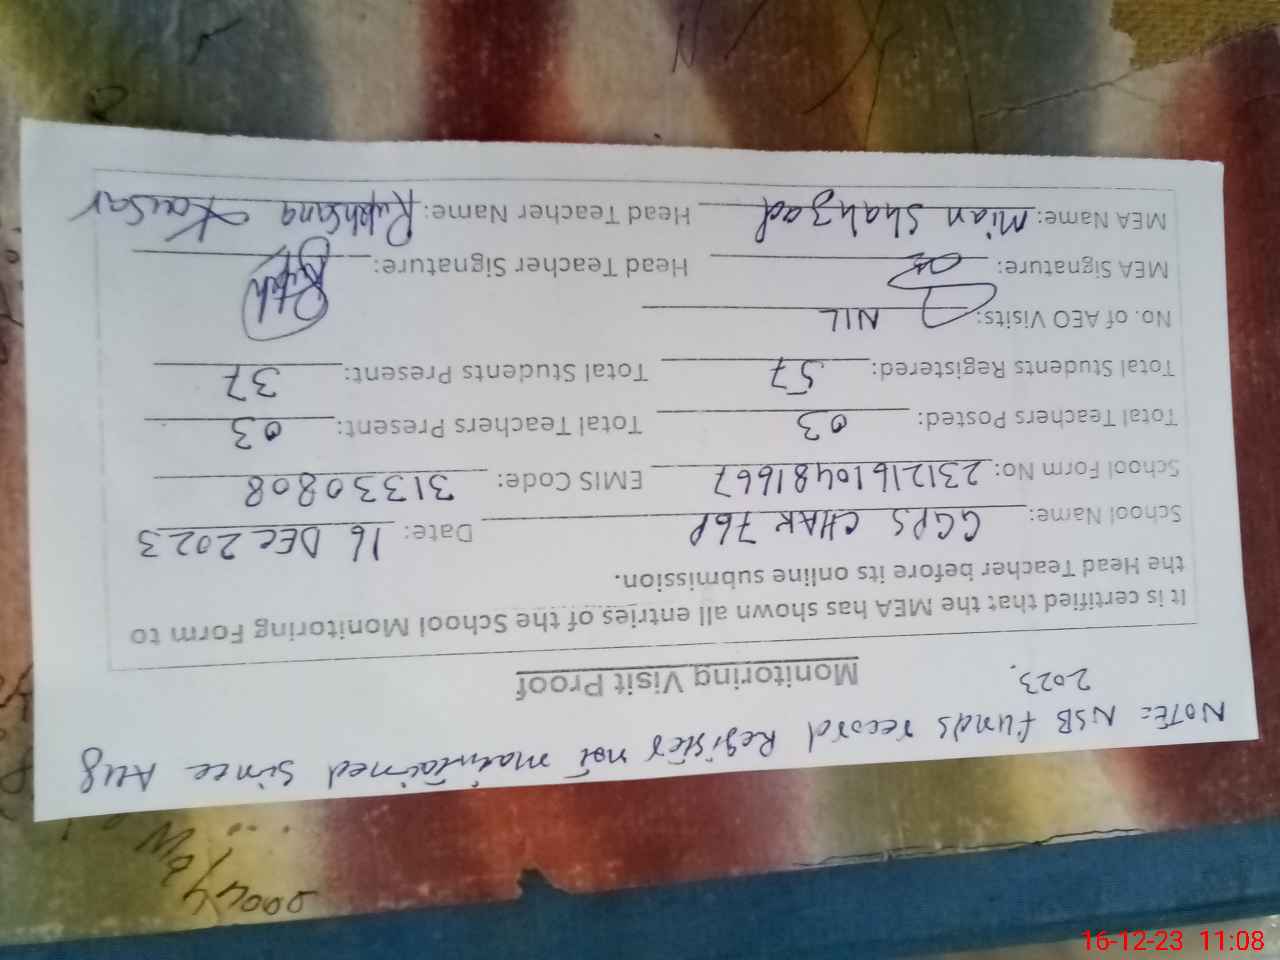 NOTE: NSB funds record Register not maintained since Aug
2023.
Monitoring Visit Proof
It is certified that the MEA has shown all entries of the School Monitoring Form to
the Head Teacher before its online submission.
School Name: GGPS CHAK 76P Date: 16 DEC 2023
School Form No: 23121610481667 EMIS Code: 31330808
Total Teachers Posted: 03 Total Teachers Present: 03
Total Students Registered: 57 Total Students Present: 37
No. of AEO Visits: NIL
MEA Signature: Head Teacher Signature:
MEA Name: Mian Shahzad Head Teacher Name: Rukhsana Kausar
16-12-23 11:08